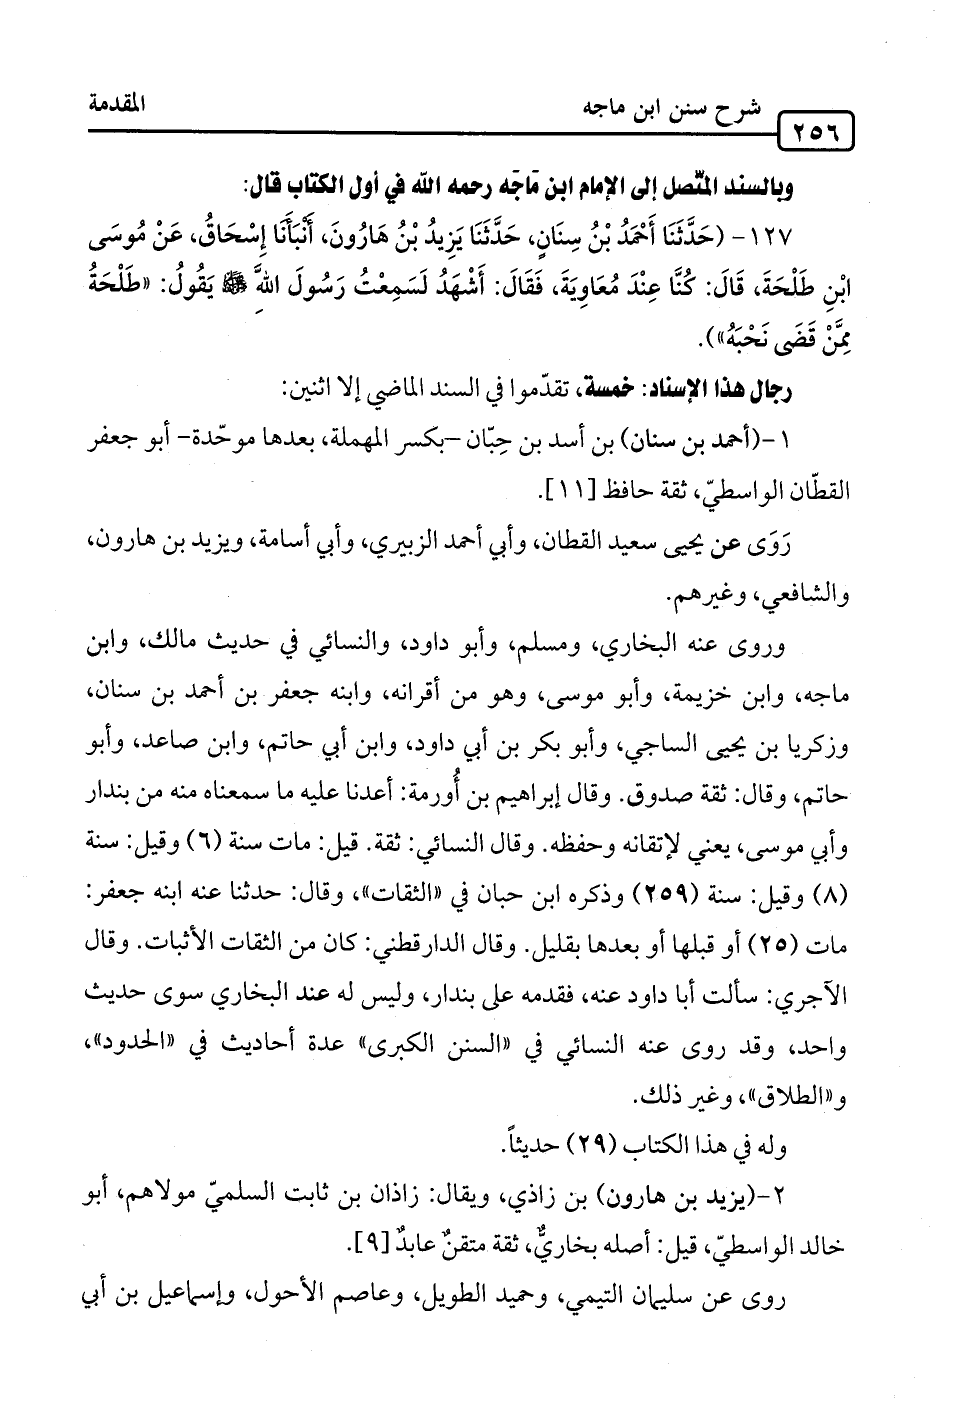 ٢٥٦ شرح سنن ابن ماجه المقدمة
وبالسند المتّصل إلى الإمام ابن مَاجَه رحمه الله في أول الكتاب قال:
١٢٧- (حَدَّثَنَا أَحْمَدُ بْنُ سِنَانٍ، حَدَّثَنَا يَزِيدُ بْنُ هَارُونَ، أَنْبَأَنَا إِسْحَاقُ، عَنْ مُوسَى
ابْنِ طَلْحَةَ، قَالَ: كُنَّا عِنْدَ مُعَاوِيَةَ، فَقَالَ: أَشْهَدُ لَسَمِعْتُ رَسُولَ اللهِ ﷺ يَقُولُ: «طَلْحَةُ
مِمَّنْ قَضَى نَحْبَهُ»).
رجال هذا الإسناد: خمسة، تقدّموا في السند الماضي إلا اثنين:
١-(أحمد بن سنان) بن أسد بن حِبّان -بكسر المهملة، بعدها موحّدة- أبو جعفر
القطّان الواسطيّ، ثقة حافظ [١١].
رَوَى عن يحيى سعيد القطان، وأبي أحمد الزبيري، وأبي أسامة، ويزيد بن هارون،
والشافعي، وغيرهم.
وروى عنه البخاري، ومسلم، وأبو داود، والنسائي في حديث مالك، وابن
ماجه، وابن خزيمة، وأبو موسى، وهو من أقرانه، وابنه جعفر بن أحمد بن سنان،
وزكريا بن يحيى الساجي، وأبو بكر بن أبي داود، وابن أبي حاتم، وابن صاعد، وأبو
حاتم، وقال: ثقة صدوق. وقال إبراهيم بن أُورمة: أعدنا عليه ما سمعناه منه من بندار
وأبي موسى، يعني لإتقانه وحفظه. وقال النسائي: ثقة. قيل: مات سنة (٦) وقيل: سنة
(٨) وقيل: سنة (٢٥٩) وذكره ابن حبان في «الثقات»، وقال: حدثنا عنه ابنه جعفر:
مات (٢٥) أو قبلها أو بعدها بقليل. وقال الدارقطني: كان من الثقات الأثبات. وقال
الآجري: سألت أبا داود عنه، فقدمه على بندار، وليس له عند البخاري سوى حديث
واحد، وقد روى عنه النسائي في «السنن الكبرى» عدة أحاديث في «الحدود»،
و«الطلاق»، وغير ذلك.
وله في هذا الكتاب (٢٩) حديثاً.
٢-(يزيد بن هارون) بن زاذي، ويقال: زاذان بن ثابت السلميّ مولاهم، أبو
خالد الواسطيّ، قيل: أصله بخاريٌّ، ثقة متقنٌ عابدٌ [٩].
روى عن سليمان التيمي، وحميد الطويل، وعاصم الأحول، وإسماعيل بن أبي